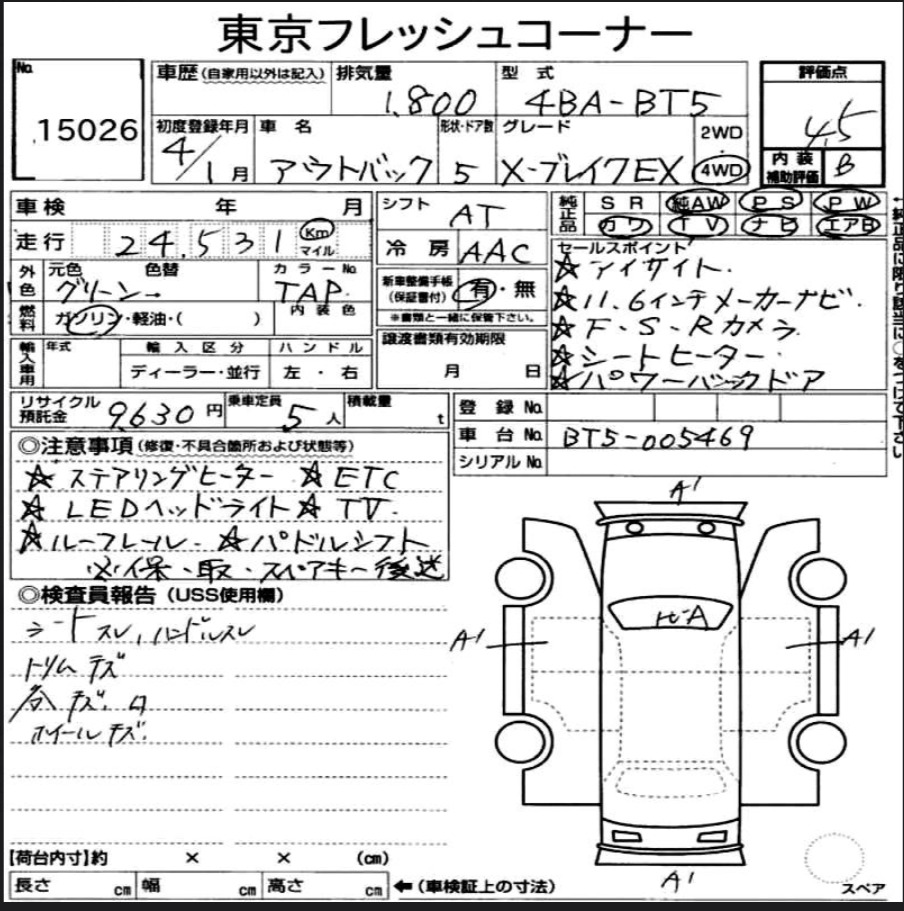 東京フレッシュコーナー
No.
15026
車歴(自家用以外は記入)
排気量
1,800
型 式
4BA-BT5
評価点
4.5
初度登録年月
4/1月
車 名
アウトバック
形状・ドア数
5
グレード
X-ブレイクEX
2WD
・
4WD
内 装
補助評価
B
車検 年 月
シフト
AT
純正品
SR 純AW PS PW
カワ TV ナビ エアB
←純正品に限り該当に○をつけて下さい
走行 24,531 Km
マイル
冷 房
AAC
セールスポイント
☆アイサイト.
☆11.6インチメーカーナビ.
☆F・S・Rカメラ
☆シートヒーター.
☆パワーバックドア
外色
元色 色替
グリーン
カラーNo.
TAP
新車整備手帳
(保証書付)
有・無
※書類と一緒に保管下さい。
燃料
ガソリン・軽油・( )
内 装 色
輸入車用
年式
輸 入 区 分
ハ ン ド ル
ディーラー・並行
左 ・ 右
譲渡書類有効期限
月 日
リサイクル
預託金
9,630円
乗車定員
5人
積載量
t
登 録 No.
車 台 No.
BT5-005469
シリアル No.
◎注意事項(修復・不具合箇所および状態等)
☆ステアリングヒーター ☆ETC
☆LEDヘッドライト☆TV.
☆ルーフレール.☆パドルシフト
※保・取・スペアキー後送
◎検査員報告(USS使用欄)
シートスレ,ハンドルスレ
トリムキズ
キズ.
ホイールキズ.
A1
ヒビA
A1
A1
A1
スペア
【荷台内寸】約 × × (cm)
長さ cm 幅 cm 高さ cm ←(車検証上の寸法)